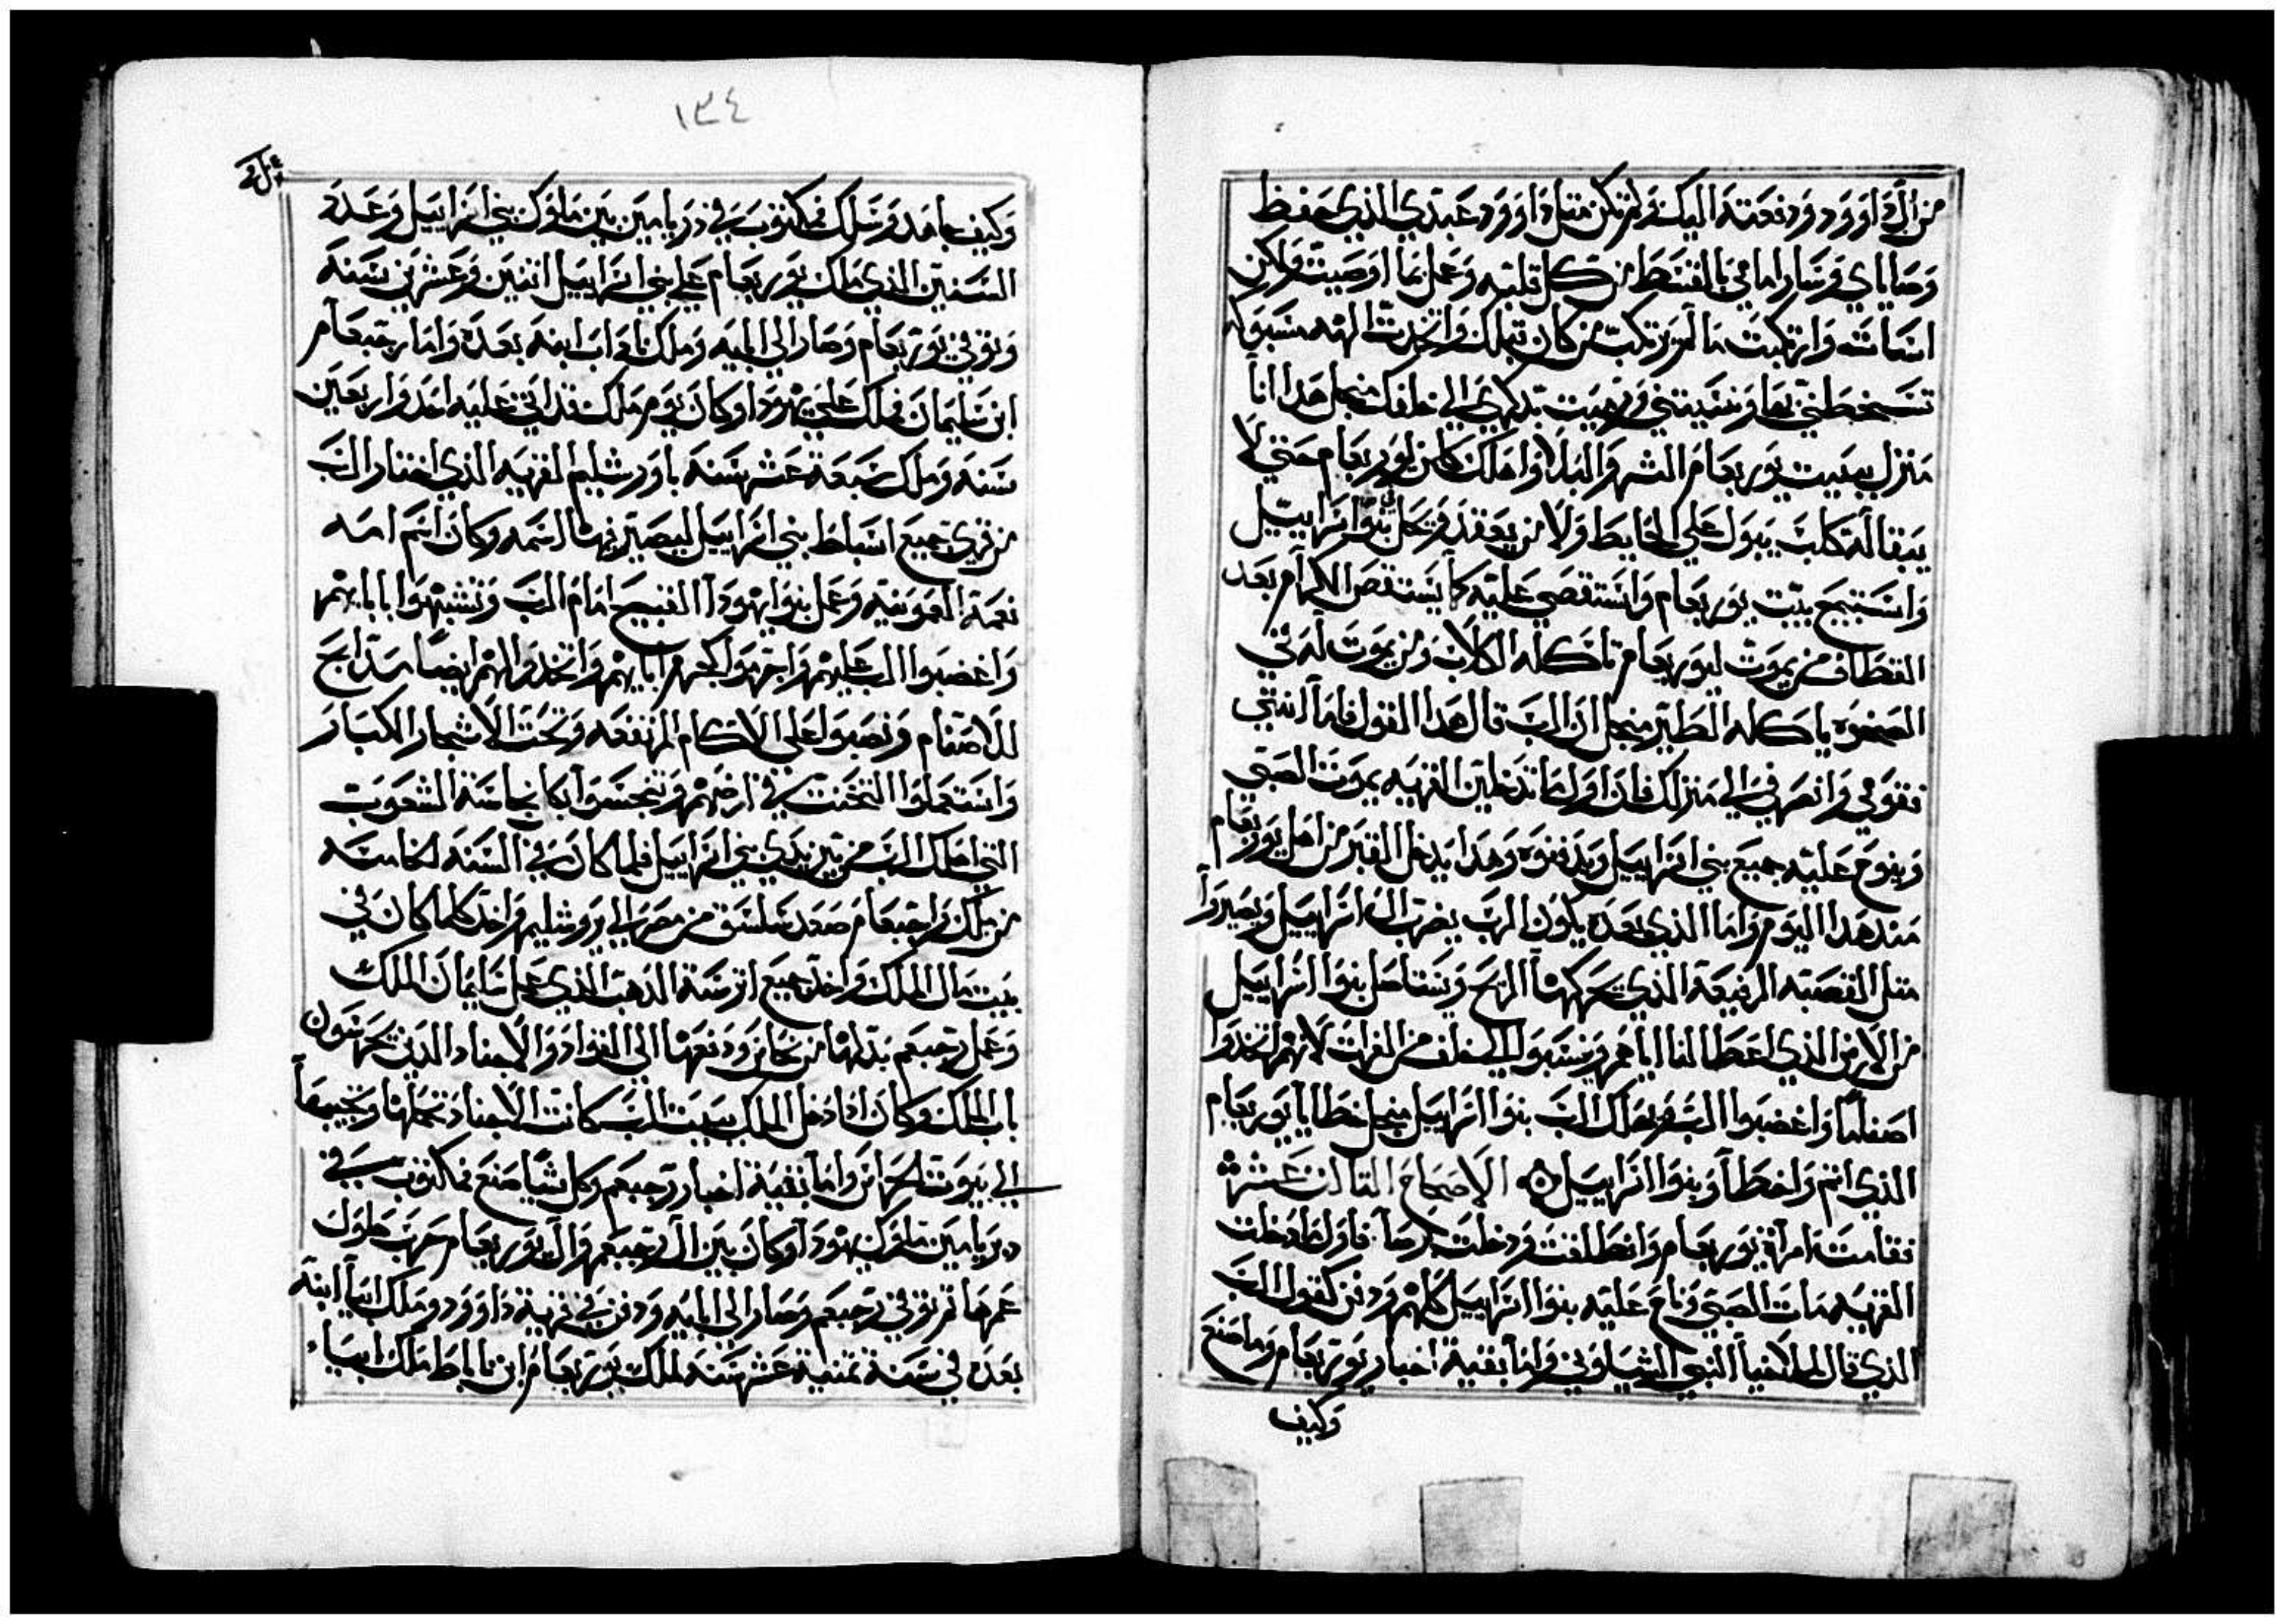 من آل داوود ودفعته اليك ولم تكن متل داوود عبدي الذي حفظ
وصاياي وسار امامي بالقسط من كل قلبه وعمل بما اوصيت ولكن
اسات وارتكبت ما لم يرتكب من كان قبلك واتخدت الهه مسبوكه
تسخطني بها ونسيتني ورميت بدكري الي خلفك منجل هدا انا
منزل ببيت يوربعام الشر والبلا واهلك كلمن ليوربعام حتي لا
يبقا له كلب يبول علي الحايط ولا من يعقد وتحل بنوا اسراييل
واستبيح بيت يوربعام واستقصي عليه كما يستقص الاكرام بعد
القطاف من يموت ليوربعام تاكله الكلاب ومن يموت له في
الصحره ياكله الطير منجل ان الرب قال هدا القول فاما انتي
فقومي وانصرفي الي منزلك فان اول ما تدخلين القريه يموت الصبي
وينوح عليه جميع بني اسراييل ويدفنوه وهدا يدخل القبر من اهل يوربعام
مند هدا اليوم واما الذي بعده يكون الرب يضرب ال اسراييل ويصيروا
متل القصبه الرفيعة الذي تحركها الريح ويستاصل بنوا اسراييل
من الارض الذي اعطا لنا اياهم وينسبوا الي خلف من الفرات لانهم اتخدوا
اصناما واغضبوا الرب ويهلك الرب بنوا اسراييل منجل خطايا يوربعام
الذي اتم واخطا وبنوا اسراييل الاصحاح التالت عشر
فقامت امراة يوربعام وانطلقت ودخلت ترصا فاول ما دخلت
القريه مات الصبي وناح عليه بنوا اسراييل كلهم ودفن كقول الرب
الذي قال لها اخيا النبي الشيلوني واما بقية اخبار يوربعام وما صنع
وكيف
١٣٤
وكيف جاهد وسلك فمكتوب في دبريامين بين ملوك بني اسراييل وعدد
السنين الذي ملك يوربعام علي بني اسراييل اتنين وعشرين سنه
وتوفي يوربعام وصار الي ابايه وملك ناداب ابنه بعده واما رحبعام
ابن سليمان فملك علي يهودا وكان يوم ملك قد اتي عليه احد واربعين
سنه وملك سبعة عشر سنه باورشليم القريه الذي اختار الرب
من قري جميع اسباط بني اسراييل ليصير فيها اسمه وكان اسم امه
نعمة العمونيه وعمل بنوا يهودا القبيح امام الرب وتشبهوا باباييهم
واغضبوا الرب عليهم واجرموا كجرم اباييهم واتخدوا لهم ايضا مدابح
للاصنام ونصبوا علي الاكام المرتفعه وتحت الاشجار الكبار
واستعملوا التخنت في ارضهم وتنجسوا بكل نجاسة الشعوب
التي اهلك الرب من بين يدي بني اسراييل فلما كان في السنه الخامسه
من ملك راحبعام صعد سلسق من مصر الي يروشليم واخد كلما كان في
بيت مال الملك واخد جميع اترسة الدهب الذي عمل سليمان الملك
وعمل رحبعم بدلها من نحاس ودفعها الي القواد والاجناد الدين يحرسون
باب الملك وكان ادا دخل الملك بيت الرب كانت الاجناد تحملها وتجيبها
الي بيوت الحراس واما بقية اخبار رحبعم وكل شيا صنع فمكتوب في
دبريامين ملوك يهودا وكان بين ال رحبعم وال يوربعام حرب طول
عمرهما تم توفي رحبعم وصار الي ابايه ودفن في قرية داوود وملك ابيا ابنه
بعده في سنة تمنية عشر سنه لملك يوربعام ابن ناباط ملك ابيا